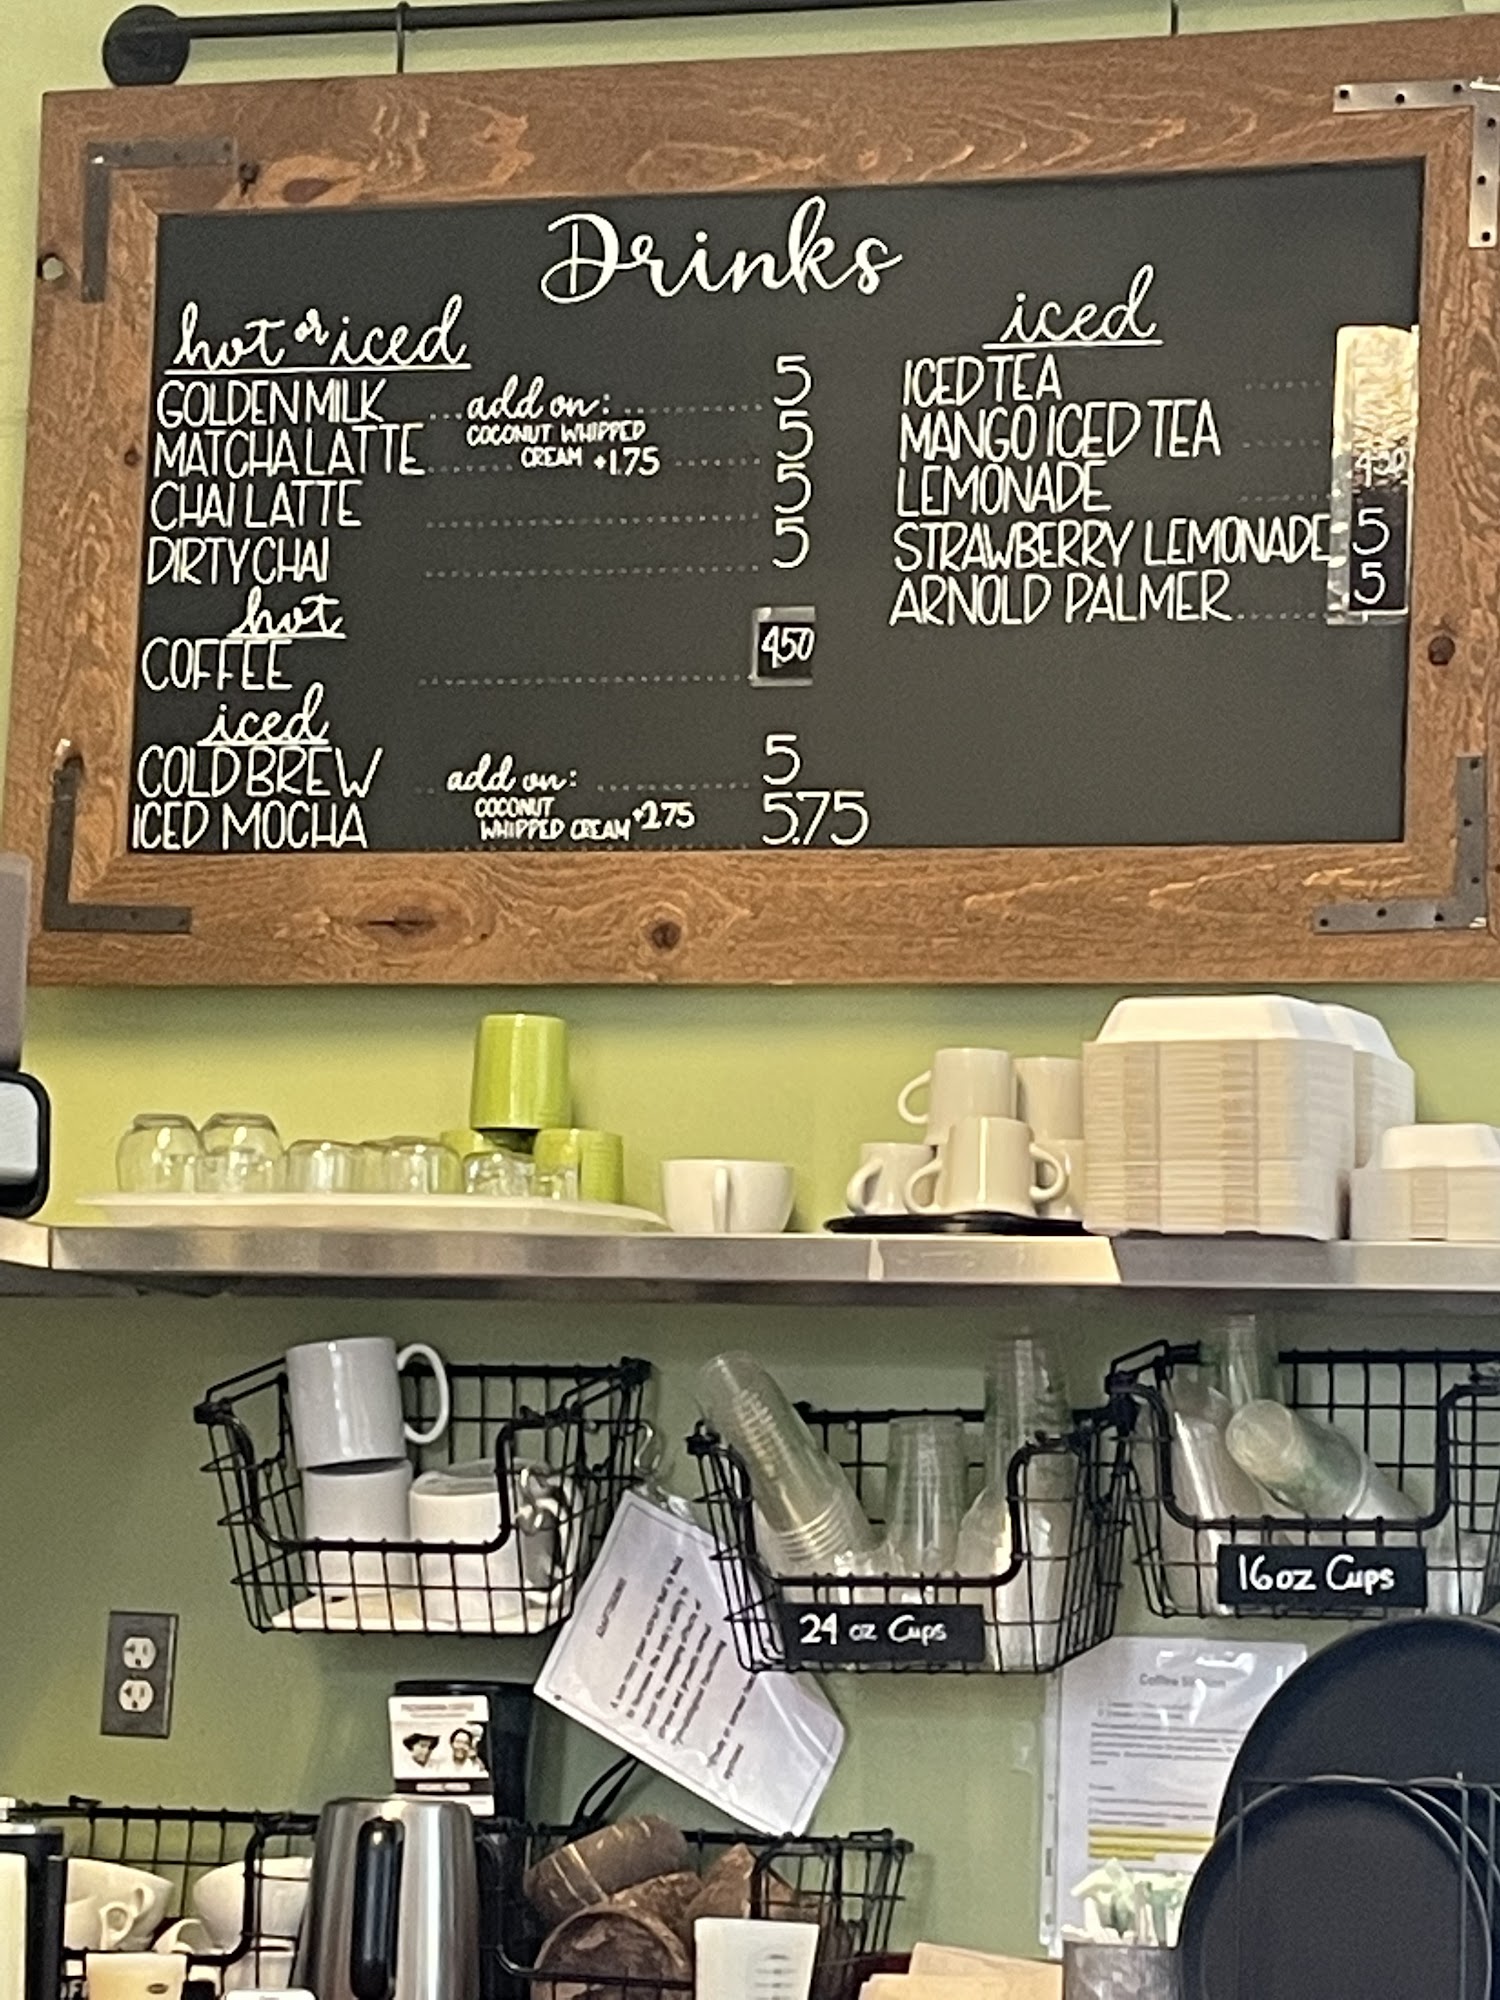 Drinks
hot or iced
GOLDEN MILK add on: 5
COCONUT WHIPPED
MATCHA LATTE CREAM +1.75 5
CHAI LATTE 5
DIRTY CHAI 5
hot
COFFEE 450
iced
COLD BREW add on: 5
COCONUT
ICED MOCHA WHIPPED CREAM +2.75 5.75
iced
ICED TEA
MANGO ICED TEA
LEMONADE 450
STRAWBERRY LEMONADE 5
ARNOLD PALMER 5
24 oz Cups
16oz Cups